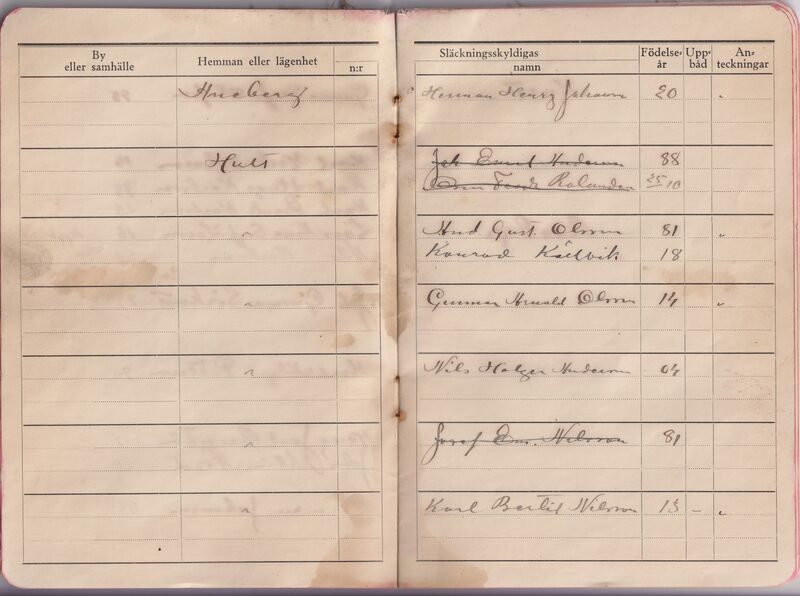 By
eller samhälle
Hemman eller lägenhet
n:r
Släckningsskyldigas
namn
Födelse-
år
Upp-
båd
An-
teckningar
Herman Henry Johansson 20 "
Hult
Joh Emil Anderson 88
Rolander 25/10
" And Gust. Olsson 81 "
Konrad 18
" Gunnar Arnold Olsson 14 "
" Nils Holger Anderson 04
" Josef Em. Nilsson 81
" Karl Bertil Nilsson 13 – "